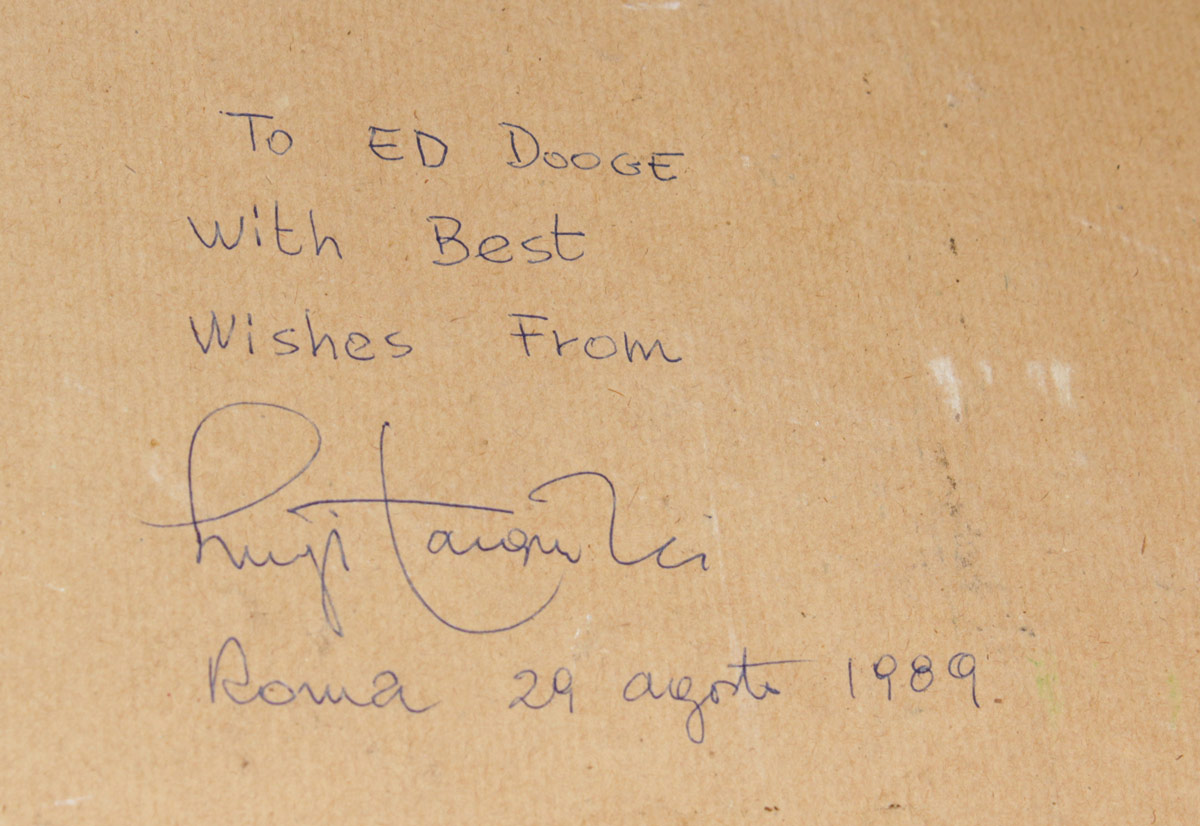 To ED DOOGE
With Best
Wishes From
Luigi
Roma 29 agosto 1989